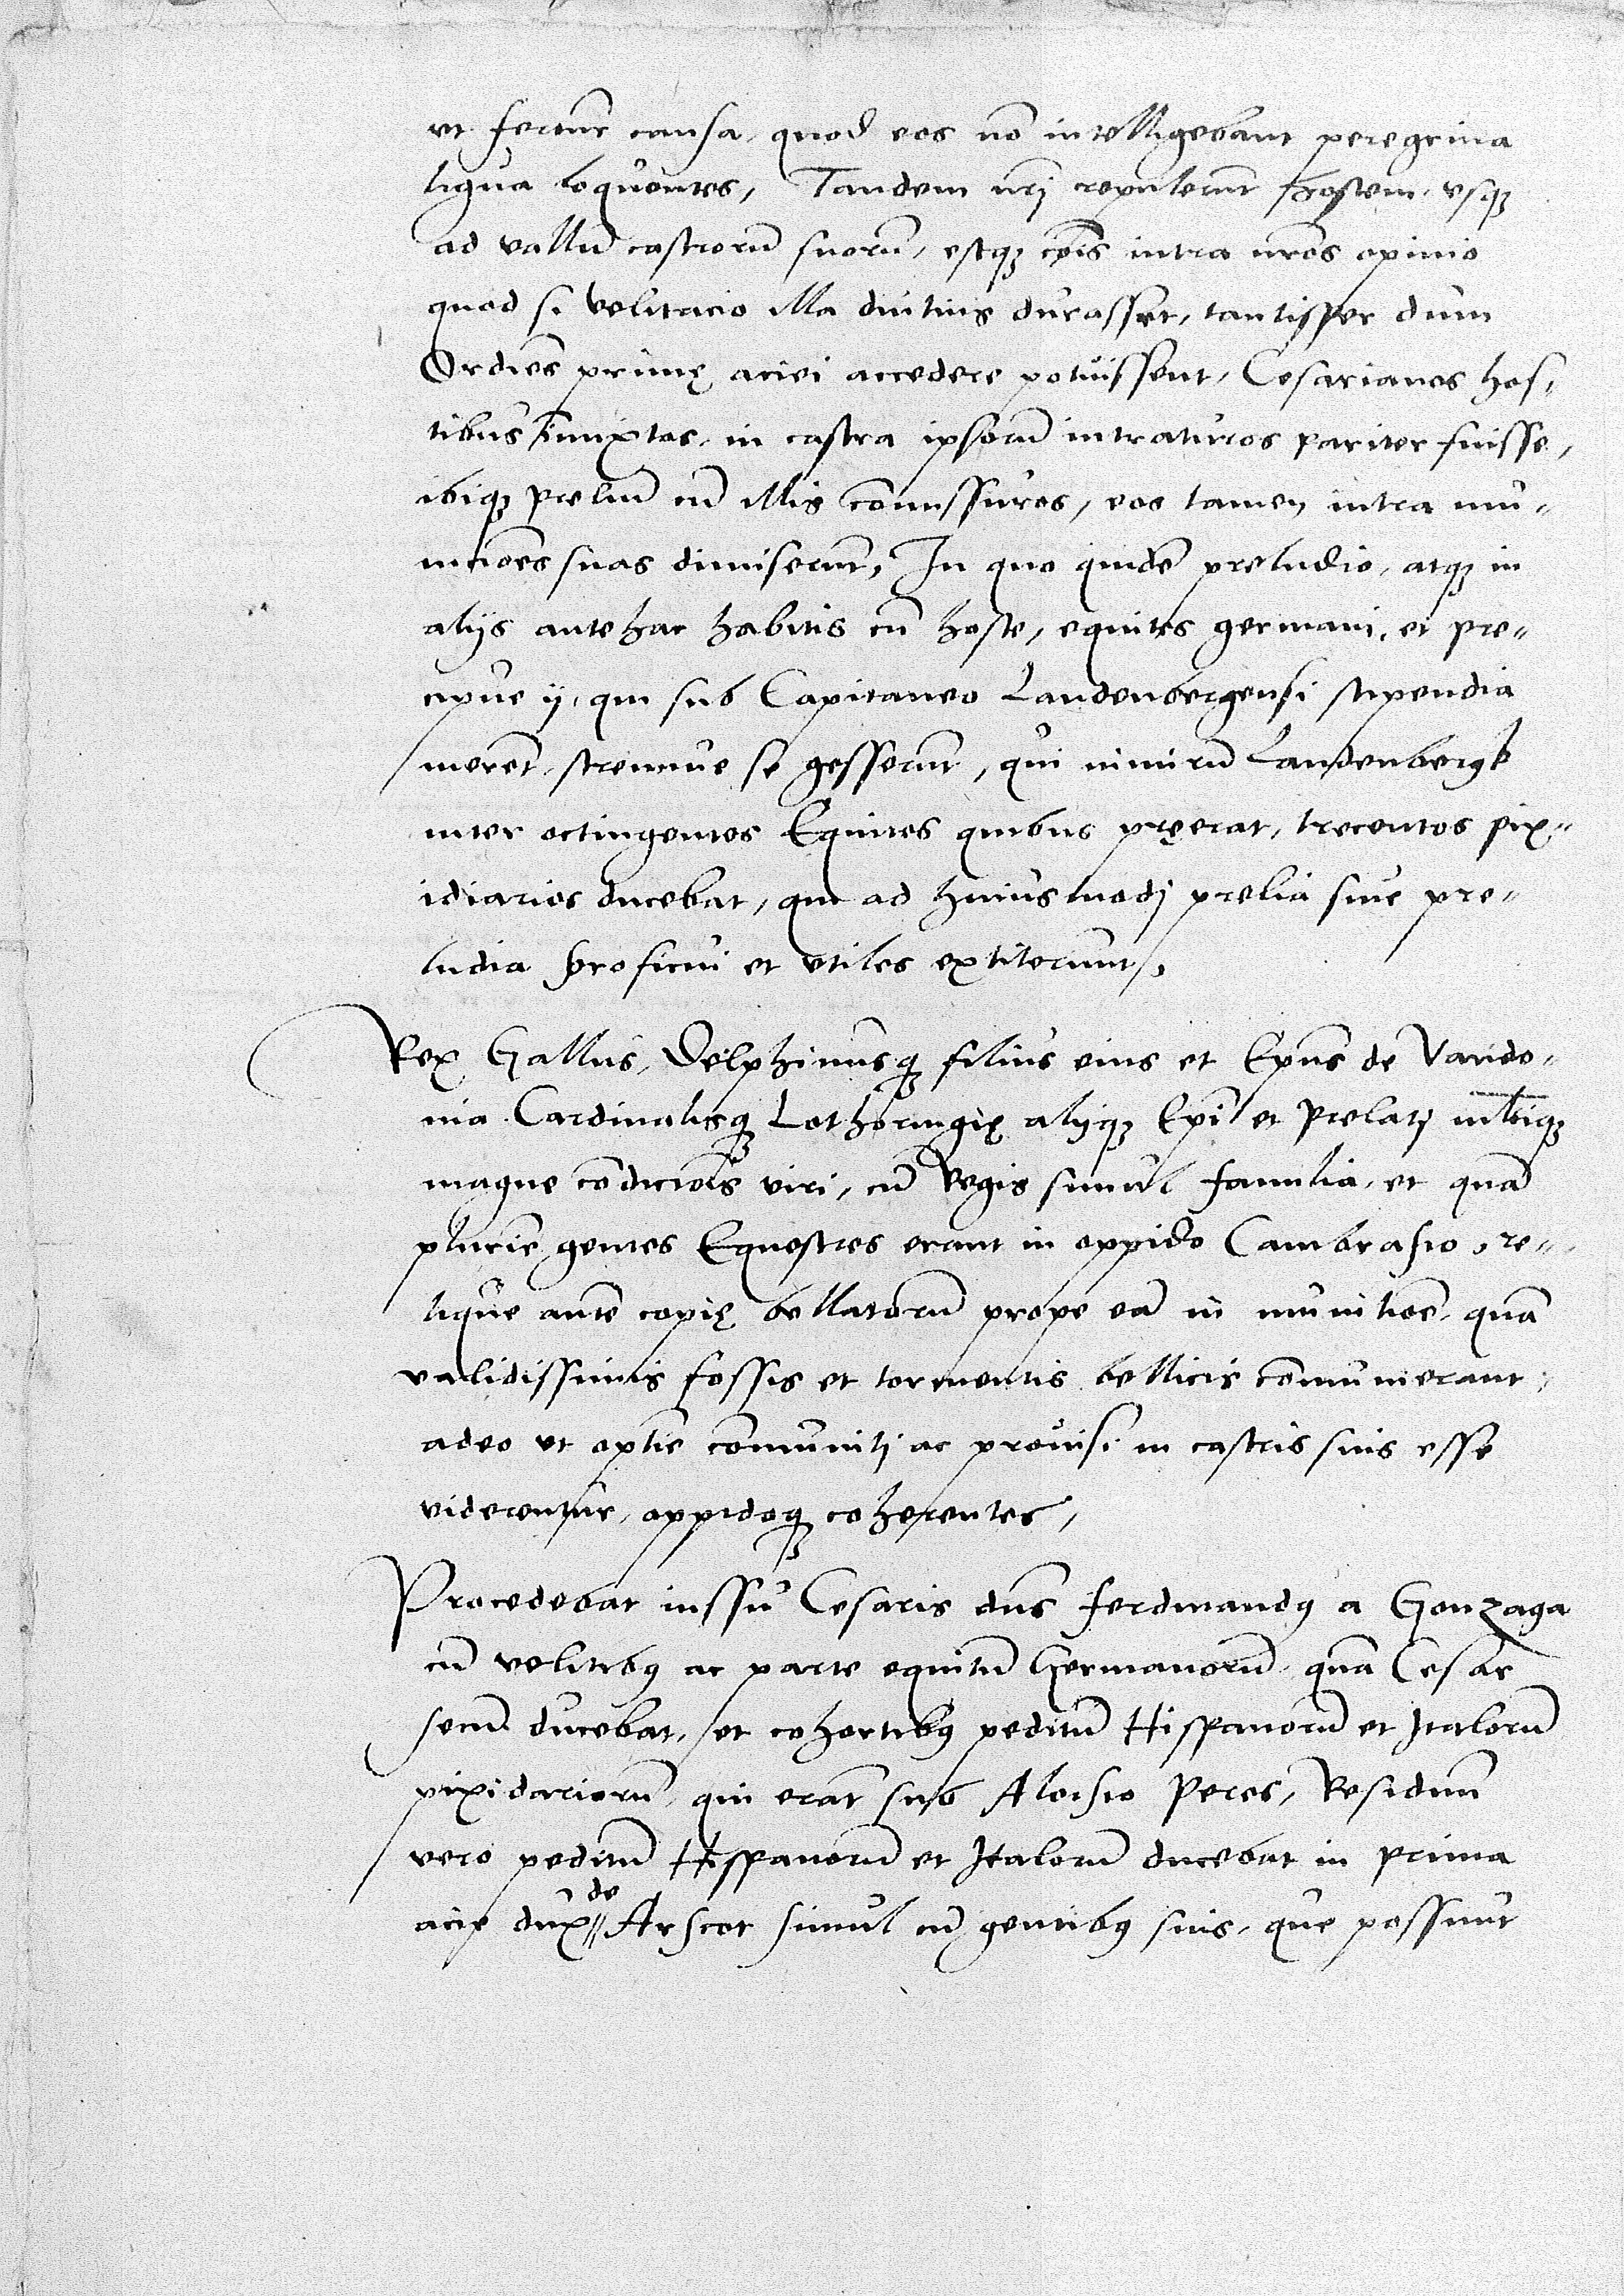 vt fertur causa, quod eos nõ intelligebant peregrina
ligua loquentes, Tandem nrj repulerunt hostem, vsq3
ad vallũ castrorũ suorũ, estq3 cõis intra nros opinio
quod si velitacio illa diutius durasset, tantisper dum
Ordies primę aciei accedere potuissent, Cesarianos hos,
tibus imixtos, in castra ipsorũ intraturos pariter fuisse,
ibiq3 preliũ cũ illis cõmissuros, eos tamen intra mu-
nicões suas dimiserũt, In quo quidẽ preludio, atq3 in
alijs antehac habitis cũ hoste, equites germani, et pre-
cipue ij, qui sub Capitaneo Landenbergensi stipendia
merẽt, strennue se gesserũt, qui nimirũ Landenbergk
inter octingentos Equites quibus pręerat, trecentos pix-
idiarios ducebat, qui ad huiusmodj prelia siue pre-
ludia proficui et vtiles extiterunt,
Rex Gallus, Delphinusq3 filius eius et Epus de Vando-
nia Cardinalisq3 Lothoringię alijq3 Epi et Prelatj nobiq3
magne cõdiciõis viri, cũ Regis simul familia, et quã
plurie gentes Equestres erant in oppido Cambrasio, re-
lique autẽ copię bellatorũ prope eã in munitiõe, quã
validissimis fossis et tormentis bellicis cõmunierant,
adeo vt optie cõmunitj ac prouisi in castris suis esse
viderentur, oppidoq3 coherentes,
Procedebat iussu Cesaris dns ferdinandus a Gonzaga
cũ velitibus ac parte equitũ Germanorũ, quã Cesar
secũ ducebat, et cohortibus peditũ Hispanorũ et Italorũ
pixidariorũ, qui erãt sub Aloisio Peres, Residuũ
vero peditũ Hispanorũ et Italorũ ducebat in prima
acie dux de Arscot simul cũ gentibus suis, que possunt